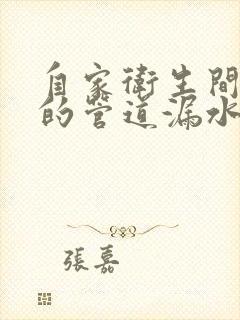 自家衛生間
的管道漏水
張嘉